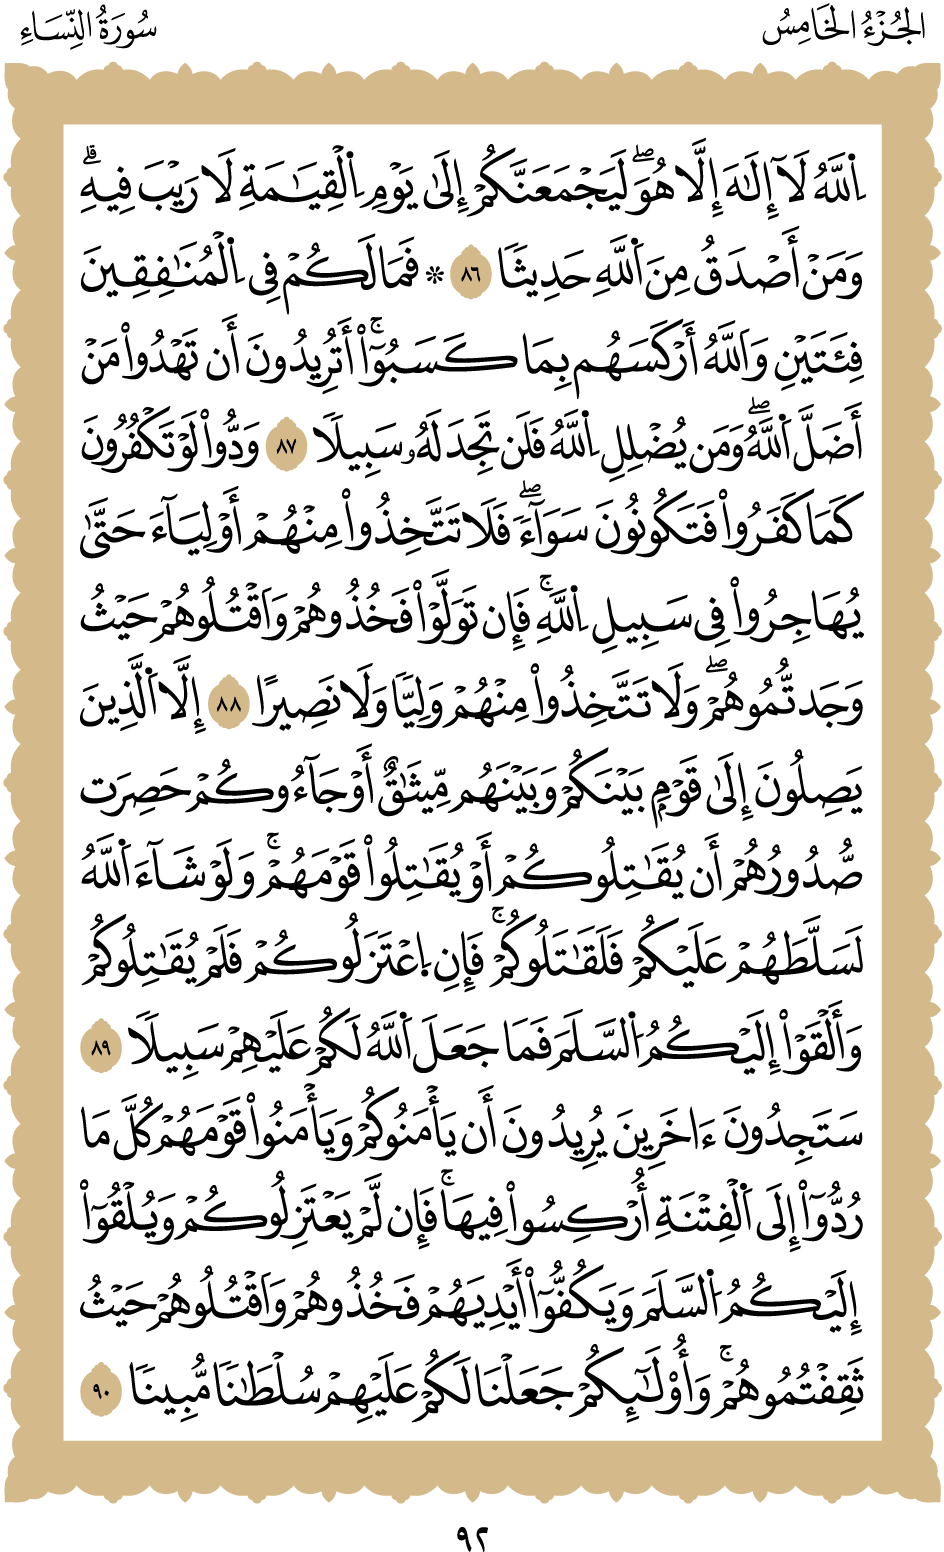 الجُزْءُ الخَامِسُ
سُورَةُ النِّسَاءِ
اِ۬للَّهُ لَآ إِلَٰهَ إِلَّا هُوَۖ لَيَجْمَعَنَّكُمْ إِلَىٰ يَوْمِ اِ۬لْقِيَٰمَةِ لَا رَيْبَ فِيهِۗ
وَمَنْ أَصْدَقُ مِنَ اَ۬للَّهِ حَدِيثٗا ٨٦ ۞ فَمَا لَكُمْ فِي اِ۬لْمُنَٰفِقِينَ
فِئَتَيْنِ وَاَللَّهُ أَرْكَسَهُم بِمَا كَسَبُوٓاْۚ أَتُرِيدُونَ أَن تَهْدُواْ مَنْ
أَضَلَّ اَ۬للَّهُۖ وَمَن يُضْلِلِ اِ۬للَّهُ فَلَن تَجِدَ لَهُۥ سَبِيلٗا ٨٧ وَدُّواْ لَوْ تَكْفُرُونَ
كَمَا كَفَرُواْ فَتَكُونُونَ سَوَآءٗۖ فَلَا تَتَّخِذُواْ مِنْهُمْ أَوْلِيَآءَ حَتَّىٰ
يُهَاجِرُواْ فِي سَبِيلِ اِ۬للَّهِۚ فَإِن تَوَلَّوْاْ فَخُذُوهُمْ وَاَقْتُلُوهُمْ حَيْثُ
وَجَدتُّمُوهُمْۖ وَلَا تَتَّخِذُواْ مِنْهُمْ وَلِيّٗا وَلَا نَصِيرًا ٨٨ إِلَّا اَ۬لَّذِينَ
يَصِلُونَ إِلَىٰ قَوْمِۭ بَيْنَكُمْ وَبَيْنَهُم مِّيثَٰقٌ أَوْ جَآءُوكُمْ حَصِرَت
صُّدُورُهُمْ أَن يُقَٰتِلُوكُمْ أَوْ يُقَٰتِلُواْ قَوْمَهُمْۚ وَلَوْ شَآءَ اَ۬للَّهُ
لَسَلَّطَهُمْ عَلَيْكُمْ فَلَقَٰتَلُوكُمْۚ فَإِنِ اِ۪عْتَزَلُوكُمْ فَلَمْ يُقَٰتِلُوكُمْ
وَأَلْقَوْاْ إِلَيْكُمُ اُ۬لسَّلَمَ فَمَا جَعَلَ اَ۬للَّهُ لَكُمْ عَلَيْهِمْ سَبِيلٗا ٨٩
سَتَجِدُونَ ءَاخَرِينَ يُرِيدُونَ أَن يَأْمَنُوكُمْ وَيَأْمَنُواْ قَوْمَهُمْ كُلَّ مَا
رُدُّوٓاْ إِلَى اَ۬لْفِتْنَةِ أُرْكِسُواْ فِيهَاۚ فَإِن لَّمْ يَعْتَزِلُوكُمْ وَيُلْقُوٓاْ
إِلَيْكُمُ اُ۬لسَّلَمَ وَيَكُفُّوٓاْ أَيْدِيَهُمْ فَخُذُوهُمْ وَاَقْتُلُوهُمْ حَيْثُ
ثَقِفْتُمُوهُمْۚ وَأُوْلَٰٓئِكُمْ جَعَلْنَا لَكُمْ عَلَيْهِمْ سُلْطَٰنٗا مُّبِينٗا ٩٠
٩٢